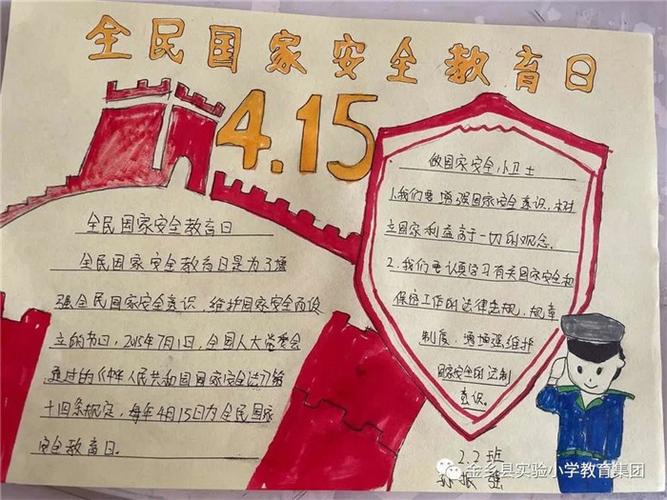 全民国家安全教育日
4.15
全民国家安全教育日
全民国家安全教育日是为了增
强全民国家安全意识，维护国家安全而设
立的节日，2015年7月1日，全国人大常委会
通过的《中华人民共和国国家安全法》第
十四条规定，每年4月15日为全民国家
安全教育日。
做国家安全小卫士
1.我们要增强国家安全意识，树
立国家利益高于一切的观念。
2.我们要认真学习有关国家安全和
保密工作的法律法规，规章
制度，增强维护
国家安全的法制
意识。
2.2班
振强
金乡县实验小学教育集团